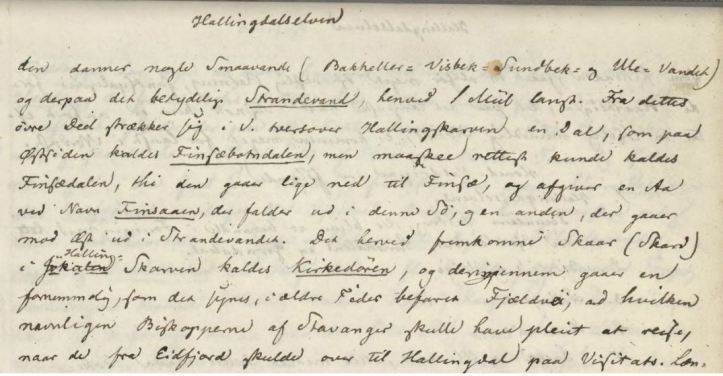 Hallingdalselven
den danner nogle Smaavande (Bakheller= Visbek= Sundbek= og Ule= Vandet)
og derpaa det betydelige Strandevand, henved 1 Miil langt. Fra dettes
övre Deel strækker sig i V. tversover Hallingskarven en Dal, som paa
Østsiden kaldes Finsæbotndalen, men maaskee rettest kunde kaldes
Finsædalen, thi den gaaer lige ned til Finsæ, og afgiver en Aa
ved Navn Finsaaen, der falder ud i denne Sö, og en anden, der gaaer
mod Øst ud i Strandevandet. Det herved fremkomne Skaar (Skard)
i Halling= Skarven kaldes Kirkedören, og derigjennem gaaer en
fornemmelig, som det synes, i ældre Tider befaret Fjældvei, ad hvilken
navnligen Biskopperne af Stavanger skulle have pleiet at reise,
naar de fra Eidfjord skulde over til Hallingdal paa Visitats. Læn-